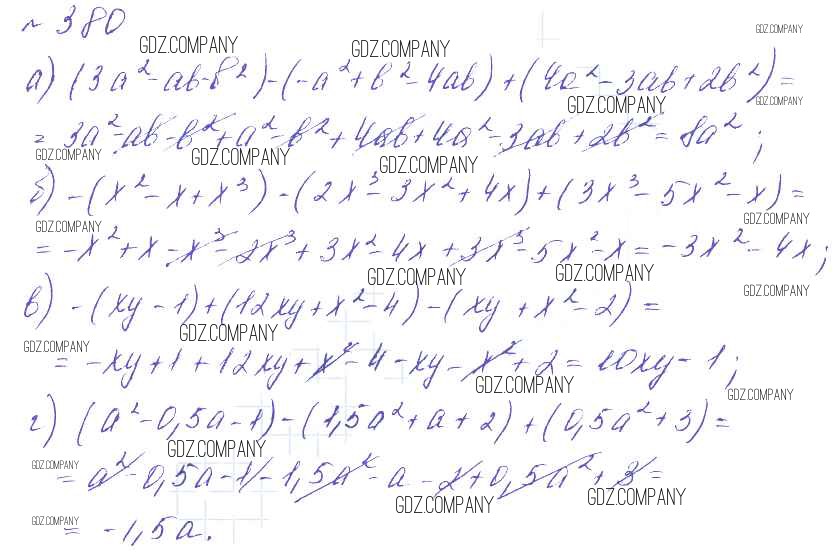 № 380
GDZ.COMPANY GDZ.COMPANY GDZ.COMPANY
а) (3a² - ab - b²) - (-a² + b² - 4ab) + (4a² - 3ab + 2b²) =
GDZ.COMPANY GDZ.COMPANY
= 3a² - ab - b² + a² - b² + 4ab + 4a² - 3ab + 2b² = 8a²;
GDZ.COMPANY GDZ.COMPANY GDZ.COMPANY
б) -(x² - x + x³) - (2x³ - 3x² + 4x) + (3x³ - 5x² - x) =
GDZ.COMPANY GDZ.COMPANY
= -x² + x - x³ - 2x³ + 3x² - 4x + 3x³ - 5x² - x = -3x² - 4x;
GDZ.COMPANY GDZ.COMPANY GDZ.COMPANY
в) -(xy - 1) + (12xy + x² - 4) - (xy + x² - 2) =
GDZ.COMPANY GDZ.COMPANY
= -xy + 1 + 12xy + x² - 4 - xy - x² + 2 = 10xy - 1;
GDZ.COMPANY GDZ.COMPANY
г) (a² - 0,5a - 1) - (1,5a² + a + 2) + (0,5a² + 3) =
GDZ.COMPANY GDZ.COMPANY
= a² - 0,5a - 1 - 1,5a² - a - 2 + 0,5a² + 3 =
GDZ.COMPANY GDZ.COMPANY GDZ.COMPANY
= -1,5a.